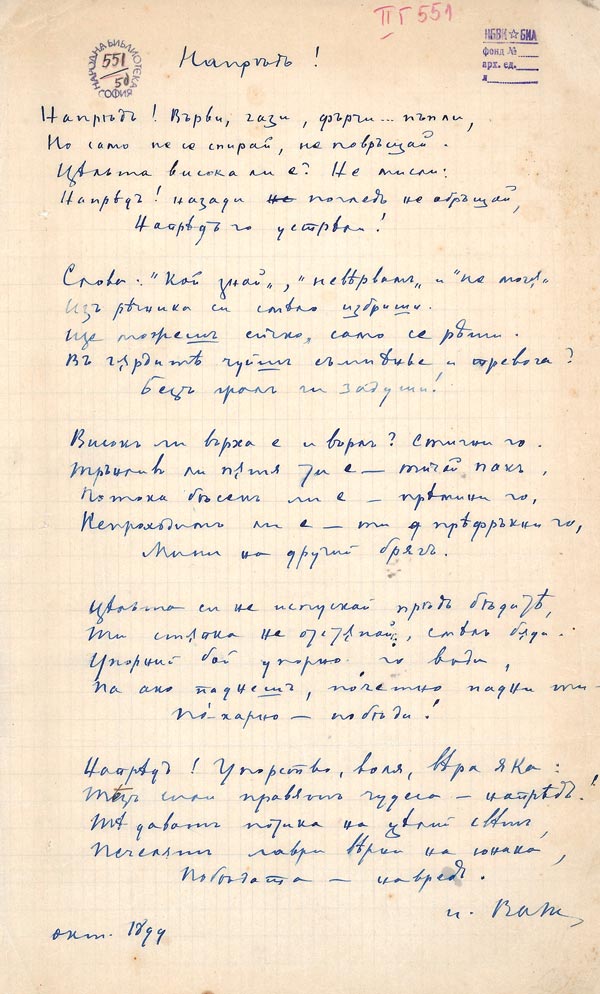 II Г 551
НАРОДНА БИБЛИОТЕКА СОФИЯ
551
НБКМ ☆ БИА
фонд №
арх. ед.
Напрѣдъ!
Напрѣдъ! Върви, гази, фърчи... пъпли,
Но само не се спирай, не повръщай.
Цѣльта висока ли е? Не мисли:
Напрѣдъ! назади не погледъ не обръщай,
Напрѣдъ го устрѣми!
Слова: "Кой знай„, "невѣрвамъ„ и "не мога„
Изъ рѣчника си смѣло избриши.
Ще можешъ сичко, само се рѣши.
Въ гѫрдитѣ чуйшъ съмнѣнье и тревога?
Безъ жаль ги задуши!
Високъ ли върха е и стръмъ? Стигни го.
Трънливъ ли пѫтя ти е — тичай пакъ,
Потока бѣсенъ ли е — прѣмини го,
Непроходимъ ли е — ти прѣфръкни го,
Мини на другий брягъ.
Цѣльта си не испускай прѣдъ бѣдитѣ,
Ни стѫпка не отстѫпай, смѣлъ бѫди.
Упорний бой упорно го води,
Па ако паднешъ, почетно падни
По-харно — побѣди!
Напрѣдъ! Упорство, воля, вѣра яка:
Тѣзъ сили правятъ чудеса — напрѣдъ!
Тѣ даватъ потика на цѣлий свѣтъ,
Печелятъ лаври вѣрни на юнака,
Побѣдата — навредъ.
И. Ваз
окт. 1899